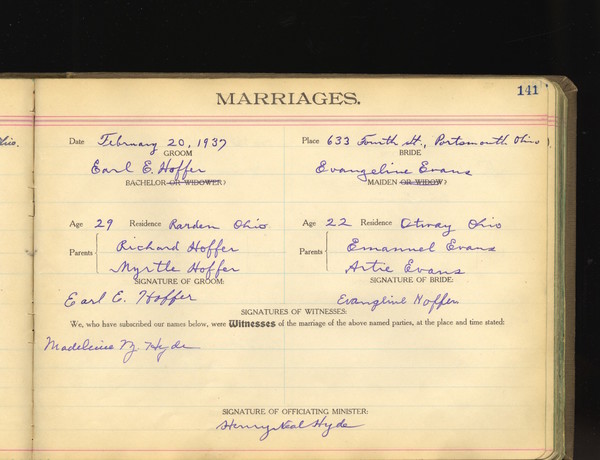 141
MARRIAGES.
Date February 20, 1937 Place 633 Fourth St., Portsmouth Ohio
GROOM BRIDE
Earl E. Hoffer Evangeline Evans
BACHELOR OR WIDOWER? MAIDEN OR WIDOW?
Age 29 Residence Rarden Ohio Age 22 Residence Otway Ohio
Parents Richard Hoffer Parents Emanuel Evans
Myrtle Hoffer Artie Evans
SIGNATURE OF GROOM: SIGNATURE OF BRIDE:
Earl E. Hoffer Evangline Hoffer
SIGNATURES OF WITNESSES:
We, who have subscribed our names below, were Witnesses of the marriage of the above named parties, at the place and time stated:
Madeleine Hyde
SIGNATURE OF OFFICIATING MINISTER:
Henry Neal Hyde